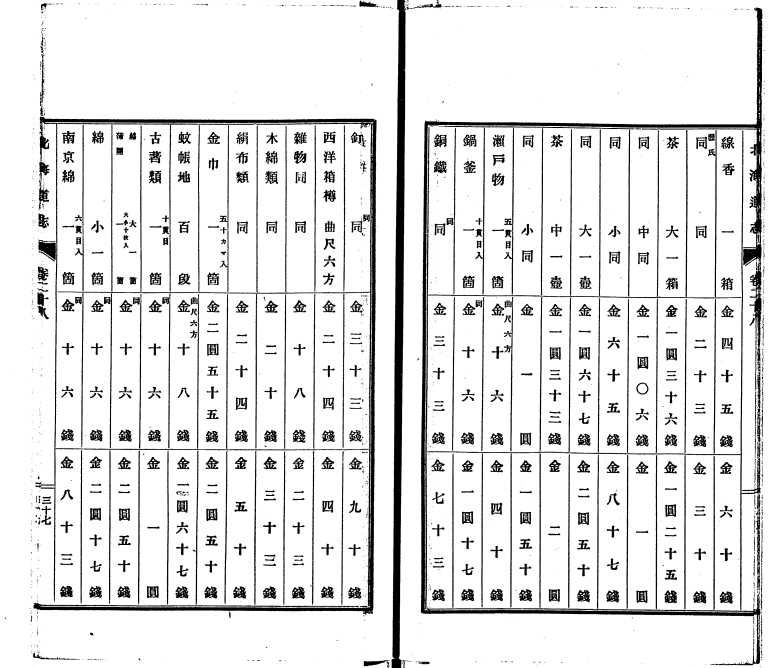 北海道志　卷二十八
線香　一箱　金四十五錢　金六十錢
同　同　金二十三錢　金三十錢
茶　大一箱　金一圓三十六錢　金一圓二十五錢
同　中同　金一圓〇六錢　金一圓
同　小同　金六十五錢　金八十七錢
同　大一壺　金一圓六十七錢　金二圓五十錢
茶　中一壺　金一圓三十三錢　金二圓
同　小同　金一圓　金一圓五十錢
瀨戸物　五貫目入一箇　曲尺六方金十六錢　金四十錢
鍋釜　十貫目入一箇　同金十六錢　金一圓十七錢
銅鐵　同同　金三十三錢　金七十三錢
釘　同同　金三十三錢　金九十錢
西洋箱樽　曲尺六方　金二十四錢　金四十錢
雜物同　同　金十八錢　金二十三錢
木綿類　同　金二十錢　金三十三錢
絹布類　同　金二十四錢　金五十錢
金巾　五十カマ入一箇　金二圓五十五錢　金二圓五十錢
蚊帳地　百段　曲尺六方金十八錢　金一圓六十七錢
古著類　十貫目一箇　同金十六錢　金一圓
大一箇　同金十六錢　金二圓五十錢
綿　小一箇　同金十六錢　金二圓十七錢
南京綿　六貫目入一箇　同金十六錢　金八十三錢
北海道志　卷二十八　三十七